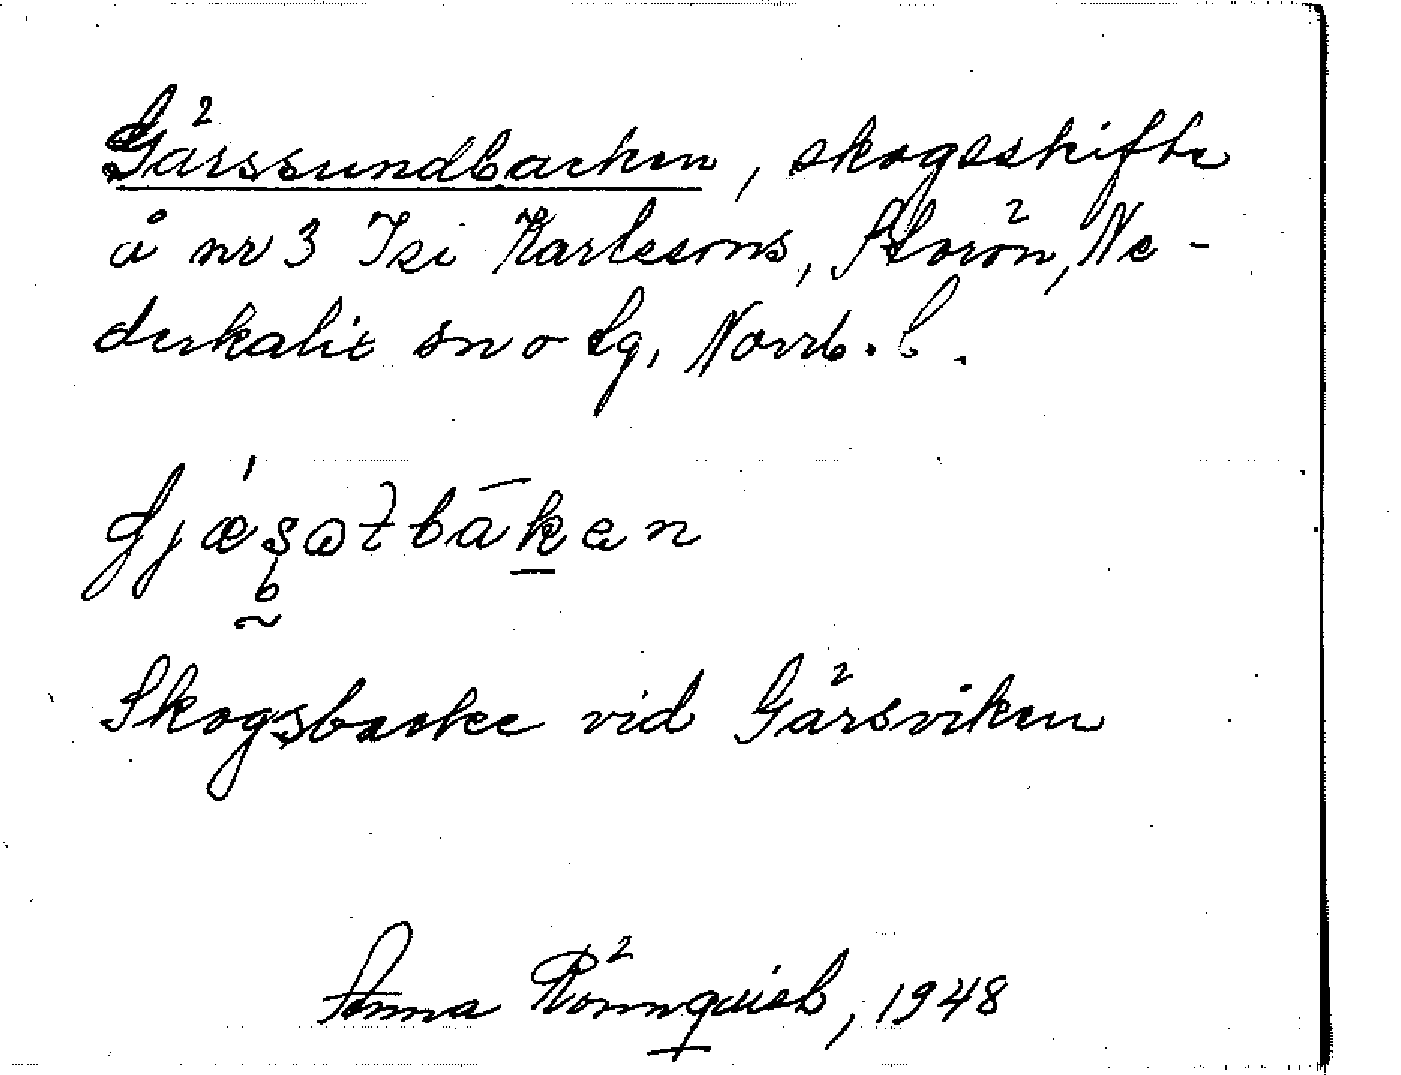 Gärssundbacken, skogsskifte
å nr 3 Isi Karlssons, Storön, Ne-
derkalix sn o lg, Norrb. l.
Skogsbacke vid Gärsviken
Anna Rönnqvist, 1948